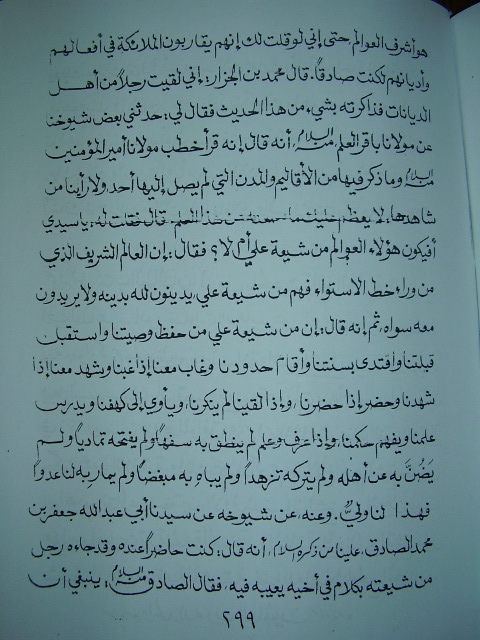 هو أشرف العوالم حتى إني لو قلت لك إنهم يقاربون الملائكة في أفعالهم
وأديانهم لكنت صادقاً. قال محمد بن الجزار: إني لقيت رجلاً من أهل
الديانات فذاكرته بشيء من هذا الحديث فقال لي: حدثني بعض شيوخنا
عن مولانا باقر العلم منه السلام أنه قال إنه قرأ خطب مولانا أمير المؤمنين
منه السلام وما ذكر فيها من الأقاليم والمدن التي لم يصل إليها أحد ولا رأينا من
شاهدها، لا يعظم عليك ما سمعته من هذا العلم. قال فقلت له: يا سيدي
أفيكون هؤلاء العوالم من شيعة علي أم لا؟ فقال: إن العالم الشريف الذي
من وراء خط الاستواء فهم من شيعة علي، يدينون لله بدينه ولا يريدون
معه سواه، ثم إنه قال: إن من شيعة علي من حفظ وصيتنا واستقبل
قبلتنا واقتدى بسنتنا وأقام حدودنا وغاب معنا إذا غبنا وشهد معنا إذا
شهدنا وحضر إذا حضرنا، وإذا لقينا لم ينكرنا، ويأوي إلى كهفنا ويدرس
علمنا ويفهم حكمنا، وإذا عرف وعلم لم ينطق به سفهاً ولم يفتحه تمادياً ولم
يَضُنَّ به عن أهله ولم يتركه تزهداً ولم يباهِ به مبغضاً ولم يمارِ به لنا عدواً
فهذا لنا وليٌّ. وعنه، عن شيوخه عن سيدنا أبي عبد الله جعفر بن
محمد الصادق، علينا من ذكره السلام، أنه قال: كنت حاضراً عنده وقد جاءه رجل
من شيعته بكلام في أخيه يعيبه فيه، فقال الصادق منه السلام: ينبغي أن
٢٩٩